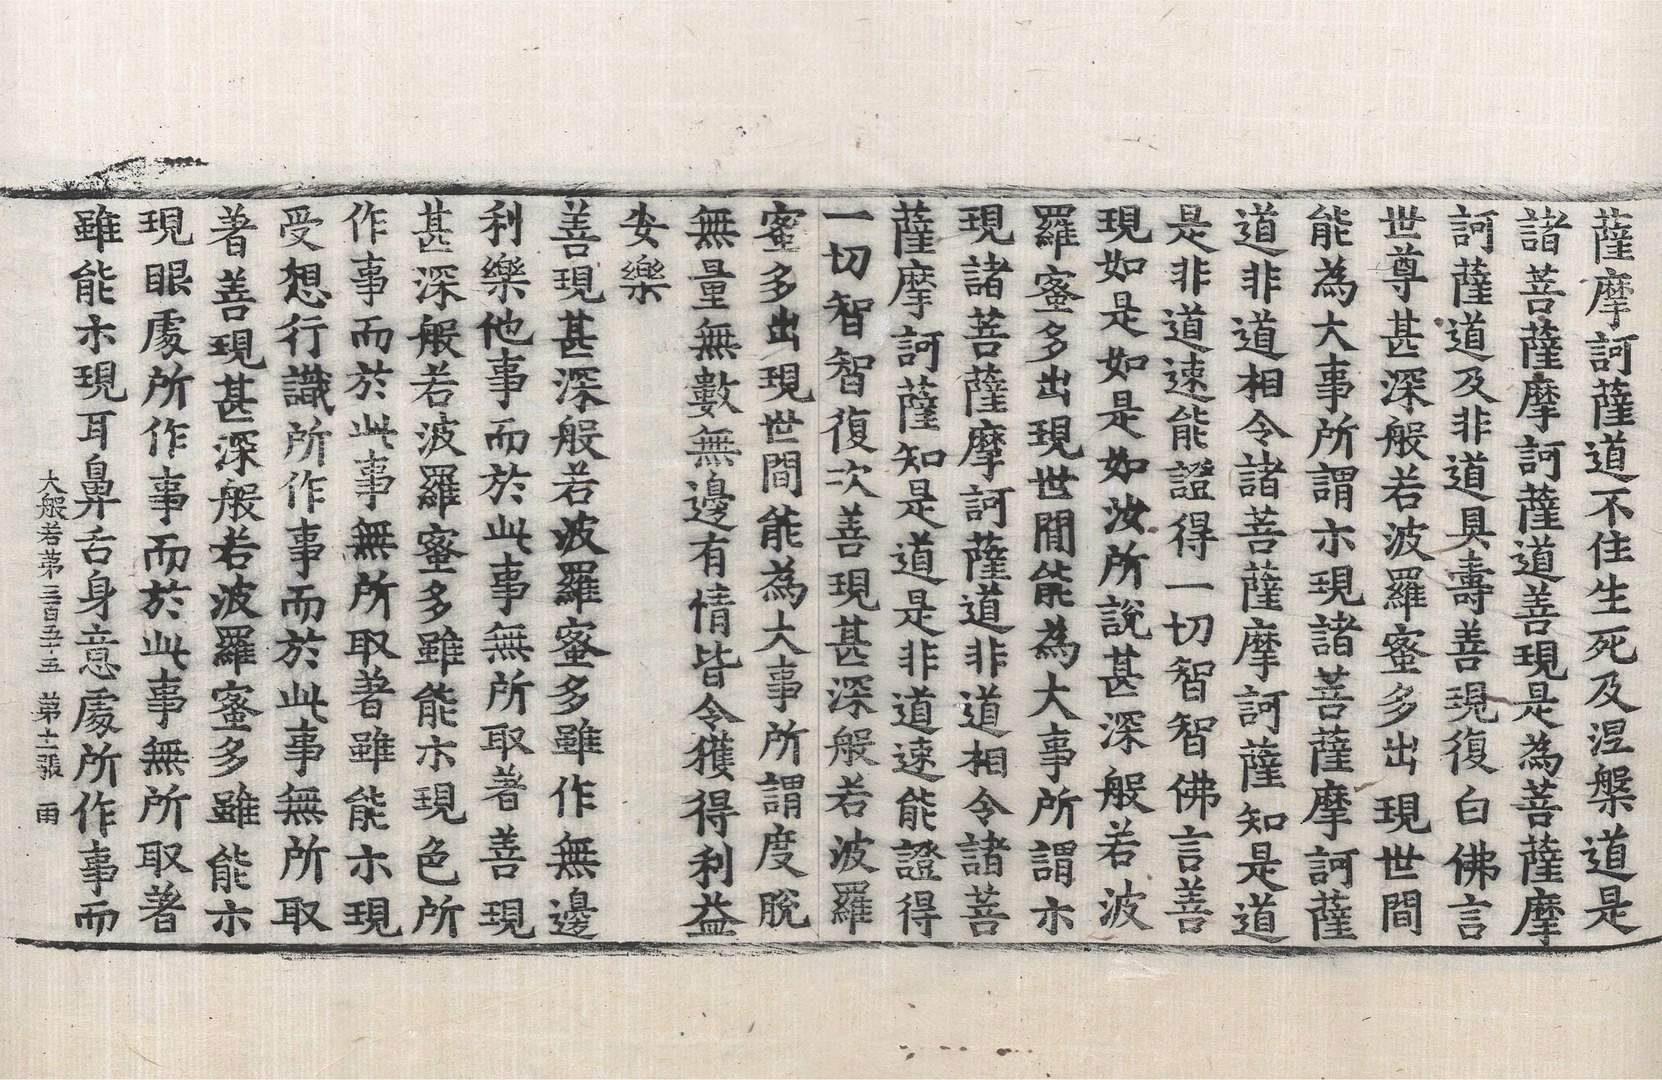 薩摩訶薩道不住生死及涅槃道是
諸菩薩摩訶薩道善現是為菩薩摩
訶薩道及非道具壽善現復白佛言
世尊甚深般若波羅蜜多出現世間
能為大事所謂亦現諸菩薩摩訶薩
道非道相令諸菩薩摩訶薩知是道
是非道速能證得一切智智佛言善
現如是如是如汝所說甚深般若波
羅蜜多出現世間能為大事所謂亦
現諸菩薩摩訶薩道非道相令諸菩
薩摩訶薩知是道是非道速能證得
一切智智復次善現甚深般若波羅
蜜多出現世間能為大事所謂度脫
無量無數無邊有情皆令獲得利益
安樂
善現甚深般若波羅蜜多雖作無邊
利樂他事而於此事無所取著善現
甚深般若波羅蜜多雖能亦現色所
作事而於此事無所取著雖能亦現
受想行識所作事而於此事無所取
著善現甚深般若波羅蜜多雖能亦
現眼處所作事而於此事無所取著
雖能亦現耳鼻舌身意處所作事而
大般若第三百五十五 第十一張 雨